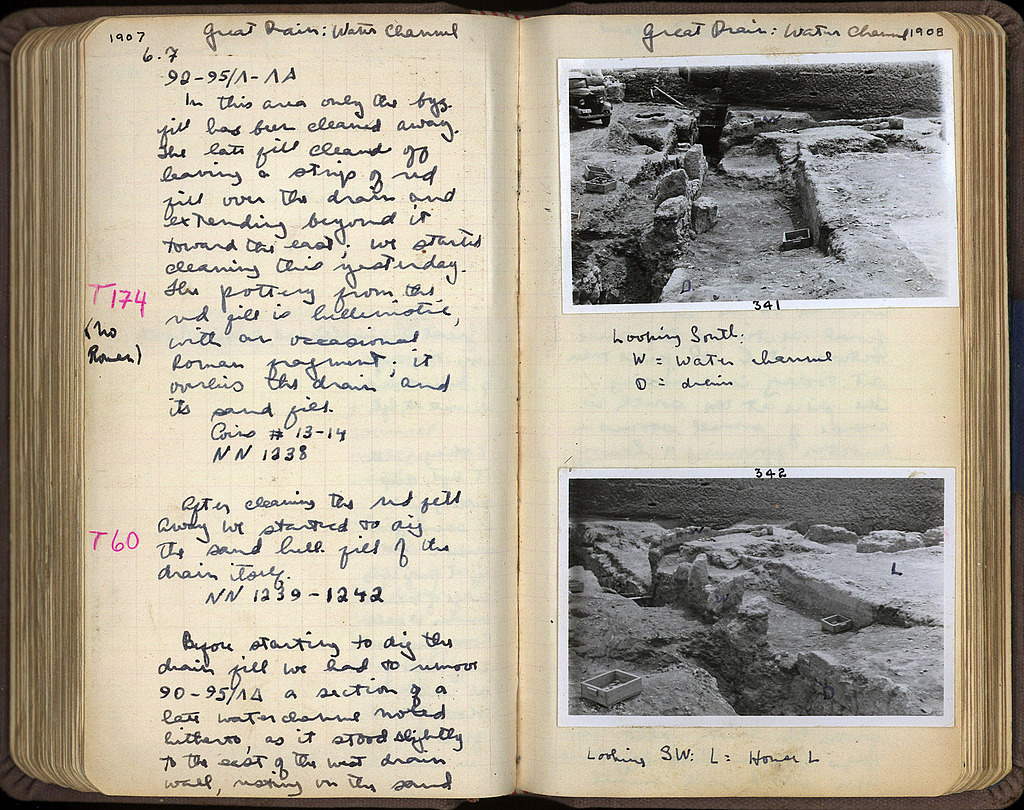 1907
Great Drain: Water Channel
6.7
90-95/Λ-ΛΔ
In this area only the byz.
fill has been cleaned away.
The late fill cleaned off
leaving a strip of red
fill over the drain and
extending beyond it
toward the east; we started
cleaning this yesterday.
T174
The pottery from this
red fill is hellenistic,
(no
Roman)
with an occasional
Roman fragment; it
overlies the drain, and
its sand fill.
Coins # 13-14
NN 1238
After cleaning the red fill
away we started to dig
T60
the sand hell. fill of the
drain itself.
NN 1239-1242
Before starting to dig the
drain fill we had to remove
90-95/ΛΔ a section of a
late water channel noted
hitherto, as it stood slightly
to the east of the west drain
wall, resting on the sand
Great Drain: Water Channel 1908
W
D
341
Looking South.
W = Water channel
D = drain
342
L
D
Looking SW: L = House L